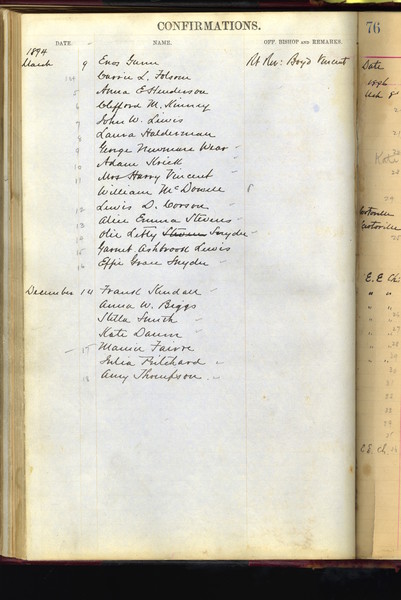 CONFIRMATIONS.
DATE. NAME. OFF. BISHOP AND REMARKS.
1894
March 9 Enos Gunn Rt Rev: Boyd Vincent
Carrie L. Folsom
5 Anna E Henderson
6 Clifford M. Kinney
7 John W. Lewis
8 Laura Halderman
9 George Newmare Wear
10 Adam Krick
11 Mrs Harry Vincent
William McDowell
12 Lewis D. Corson
13 Alice Emma Stevens
Olie Letty Stevens Snyder
15 Garnet Ashbrook Lewis
16 Effie Grace Snyder
December 14 Frank Kendall
Anna W. Biggs
Stella Smith
Kate Daum
17 Maurice Faivre
Julia Pritchard
18 Amy Thompson
76
Date
1896
Mch 8
Kate
E. E. Ch.
" "
" "
" "
" "
" "
C.E. Ch.